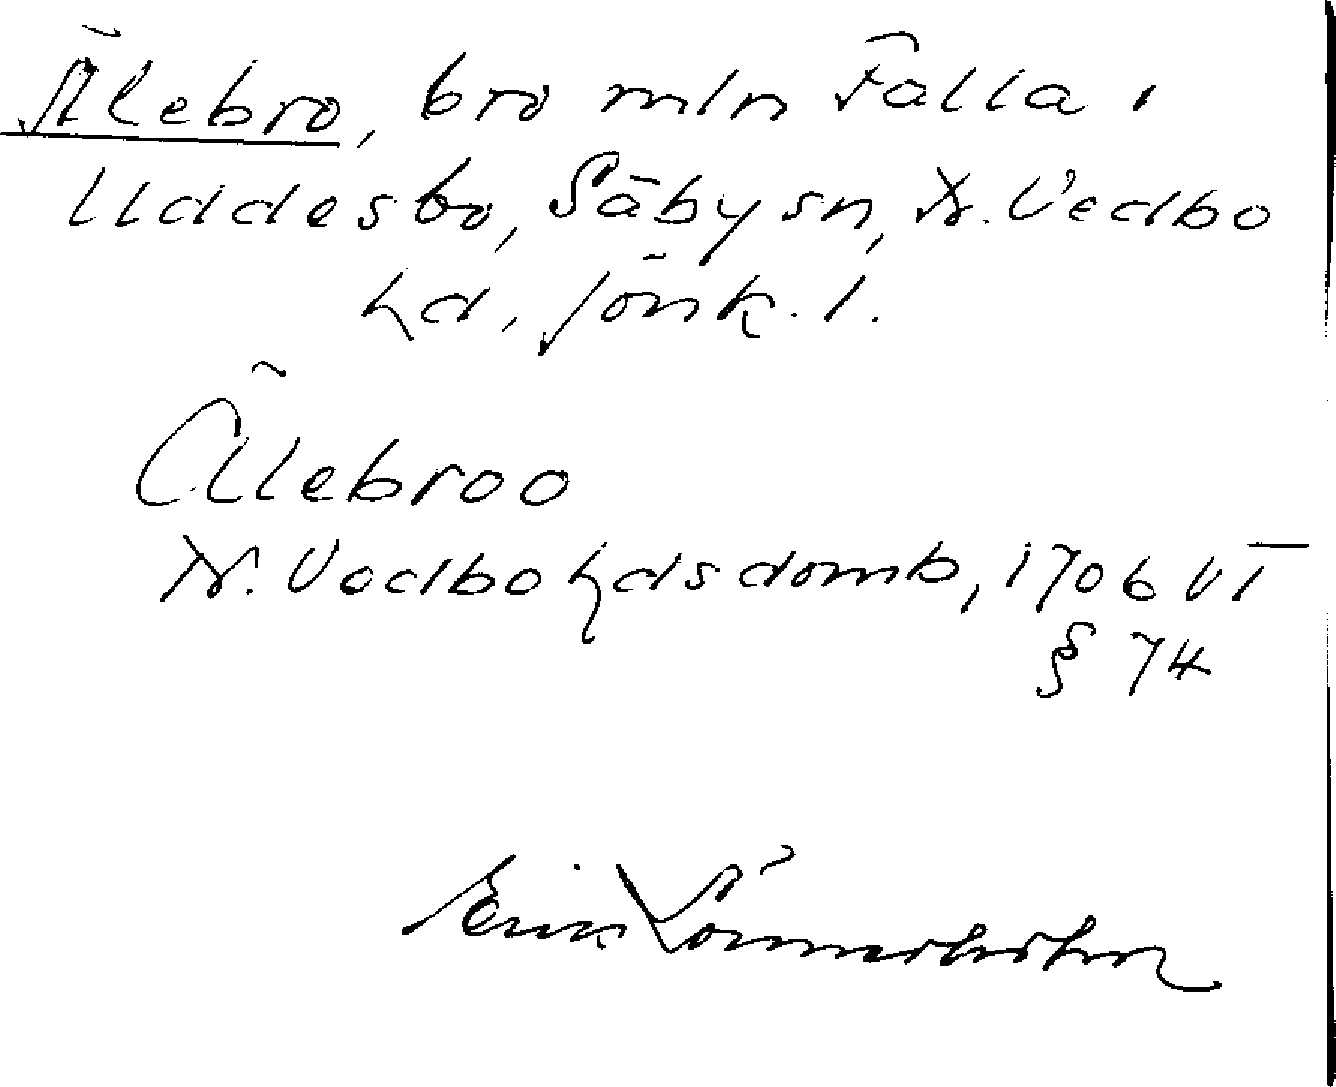 Älebro, bro mln Falla i
Uddesbo, Säby sn, N. Vedbo
hd, Jönk. l.
Ällebroo
N. Vedbo hds domb, 1706 VT
§ 74
Erik